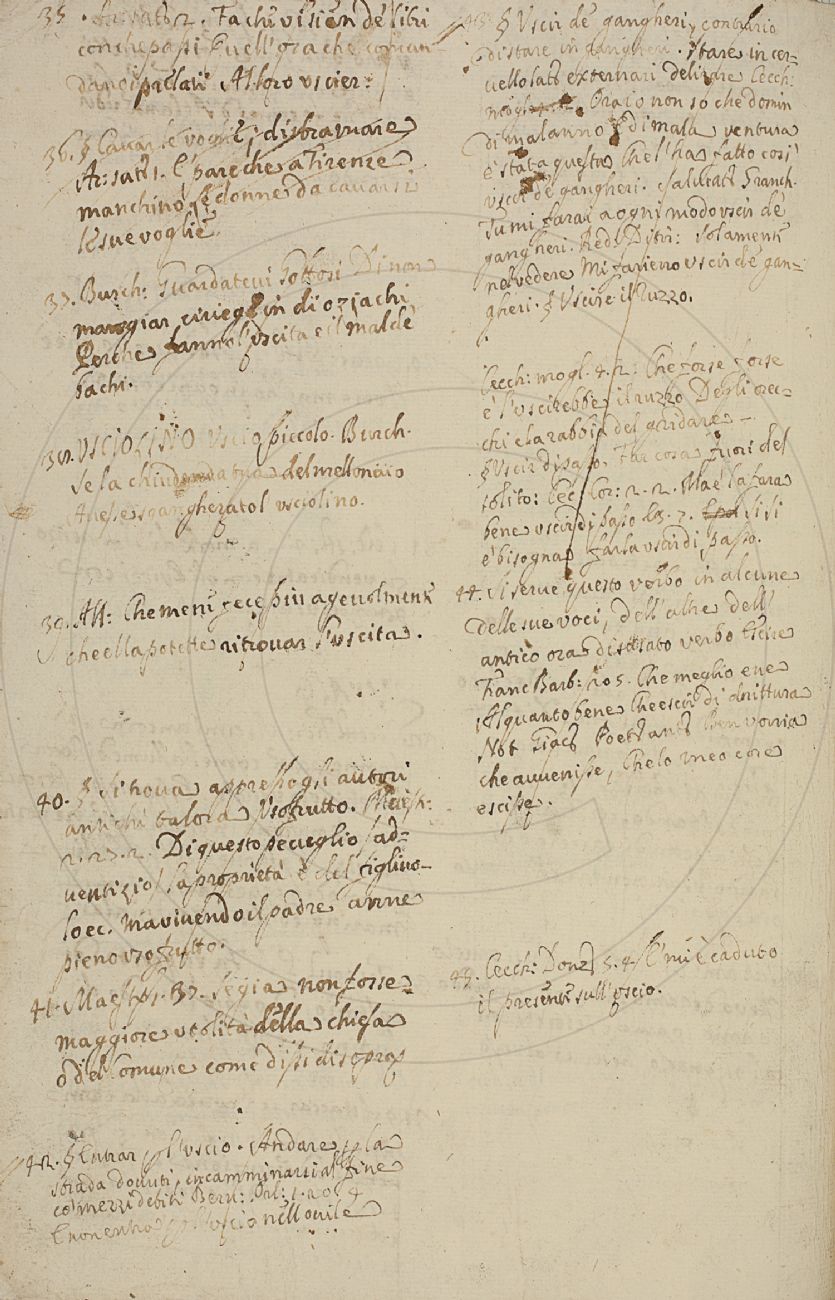 35. sat. 2. Tachi visien de libri
con che passi quell' ora che coman
danoi prelati Alloro uscier.
36. § Cavar le voglie, disbramare
Ar: sat. 1. E' pare che a Firenze
manchino le donne da cavarsi
le sue voglie.
37. Burch: Guardatevi Gottosi Di non
mangiar ciriege in di oziachi
Perche fanno l'uscita e il mal de
bachi.
38. USCIOLINO Uscio piccolo. Burch.
Se la chiudenda tua del mellonaio
Avesse sgangherato l' usciolino.
39. All: Che meni fece più agevolment
che ella potette ritrovar l'uscita.
40. § Si trova appresso gli autori
antichi talora Usofrutto. Maestr:
2. 27. 2. Di questo peculio (ad-
ventizio) la proprietà è del figliuo-
lo ec. ma vivendo il padre anne
pieno usofrutto.
41. Maestr. 1. 37. Se già non fosse
maggiore utolità della chiesa
o del Comune come dissi di sopra
42. § Entrar p l'uscio. Andare p la
strada dovuti, incamminarsi al fine
co' mezzi debiti Bern: Orl: 1. 20. 4
E non entra p l'uscio nell' ovile
43. § Uscir de' gangheri, contrario
di stare in gangheri. Stare in cer-
vello lat. externari delirare Cecch:
mogl. Or a io non so che domin
di malanno o di mala ventura
è stata questa Che l' ha fatto così
uscir de' gangheri. Salviat. Granch.
Tu mi farai a ogni modo uscir de'
gangheri. Red. Ditir: Solament
nel vedere Mi farieno uscir de' gan-
gheri. § Uscire il ruzzo.
Cecch: mogl. 4. 2: Che forse forse
e' l' uscirebbe il ruzzo Degli orec-
chi e la rabbia del gridare –
§ Uscir di passo. Far cosa fuori del
solito: Cecch. Cor: 2. 2. Ma e' la farà
bene uscir di passo 7. Si si
e' bisogna farla uscir di passo.
44. Si serve questo verbo in alcune
delle sue voci, dell' altre dell'
antico ora disusato verbo Escire
Franc Barb: 205. Che meglio ene
Alquanto bene Che escir di drittura
Not. Giac. Poet. ant. Ben vorria
che avvenisse, Che lo meo core
escisse.
45. Cecch: Donz. 5. 4. E' mi è caduto
il present sull' uscio.